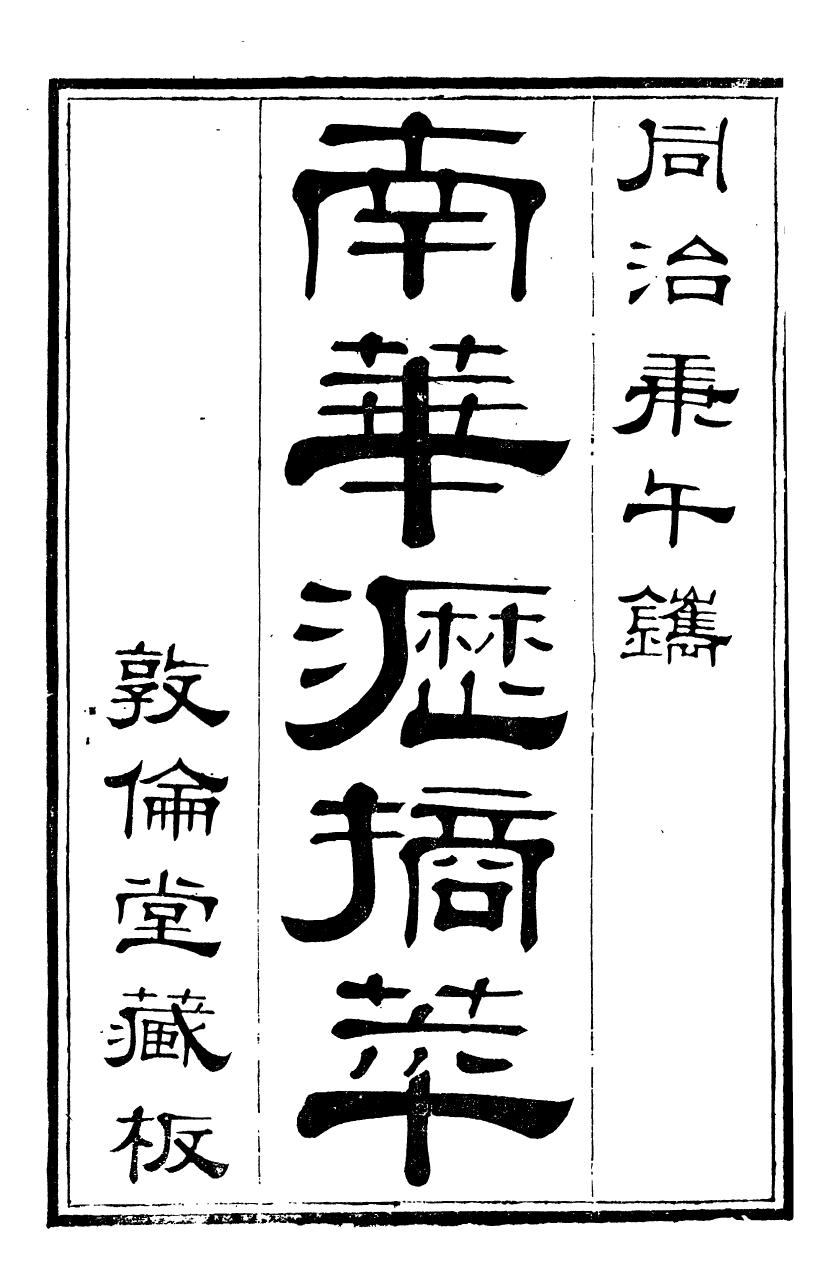 同治庚午鐫
南華瀝摘萃
敦倫堂藏板